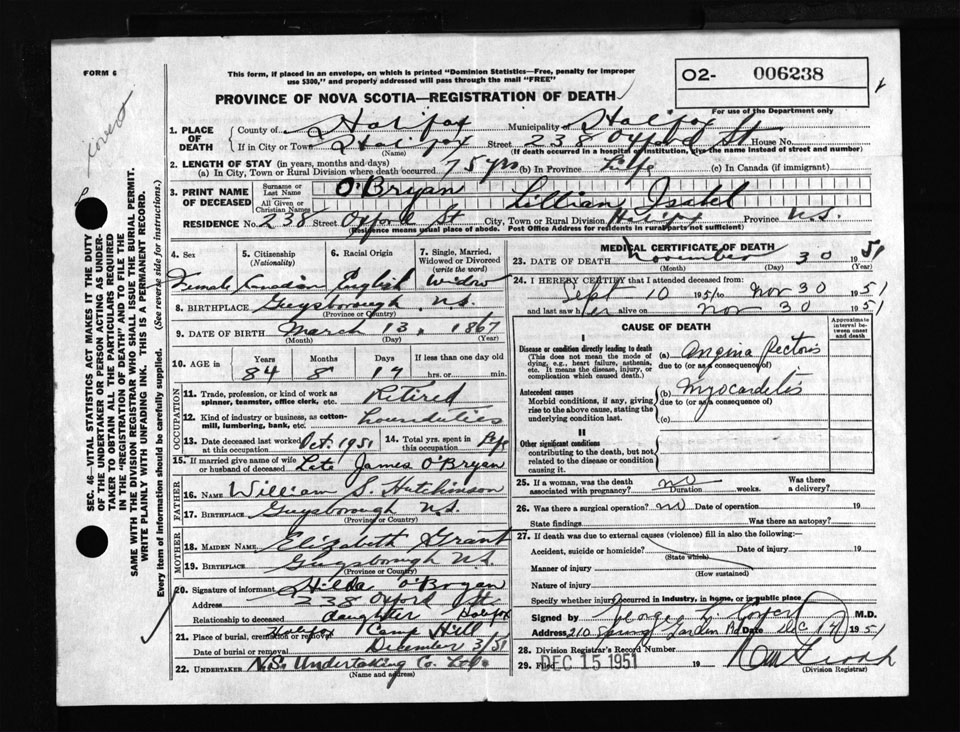 FORM 6
This form, if placed in an envelope, on which is printed "Dominion Statistics—Free, penalty for improper
use $300," and properly addressed will pass through the mail "FREE"
O2- 006238
PROVINCE OF NOVA SCOTIA—REGISTRATION OF DEATH
For use of the Department only
1. PLACE OF DEATH County of Halifax Municipality of Halifax
If in City or Town Halifax (Name) Street 238 Oxford St House No.
(If death occurred in a hospital or institution, give the name instead of street and number)
2. LENGTH OF STAY (in years, months and days)
(a) In City, Town or Rural Division where death occurred 75 yrs (b) In Province Life (c) In Canada (if immigrant)
3. PRINT NAME OF DECEASED Surname or Last Name O'Bryan
All Given or Christian Names Lillian Isabel
RESIDENCE No. 238 Street Oxford St City, Town or Rural Division Halifax Province N.S.
(Residence means usual place of abode. Post Office Address for residents in rural parts not sufficient)
4. Sex 5. Citizenship (Nationality) 6. Racial Origin 7. Single, Married, Widowed or Divorced (write the word)
Female Canadian English Widow
8. BIRTHPLACE Guysborough N.S.
(Province or Country)
9. DATE OF BIRTH March 13, 1867
(Month) (Day) (Year)
10. AGE in Years Months Days If less than one day old
84 8 17 hrs. or min.
OCCUPATION
11. Trade, profession, or kind of work as spinner, teamster, office clerk, etc. Retired
12. Kind of industry or business, as cotton-mill, lumbering, bank, etc. houseduties
13. Date deceased last worked at this occupation Oct. 1951 14. Total yrs. spent in this occupation Life
15. If married give name of wife or husband of deceased Late James O'Bryan
FATHER
16. Name William S. Hutchinson
17. BIRTHPLACE Guysborough N.S.
(Province or Country)
MOTHER
18. MAIDEN NAME Elizabeth Grant
19. BIRTHPLACE Guysborough N.S.
(Province or Country)
20. Signature of informant Hilda O'Bryan
Address 238 Oxford St. Halifax
Relationship to deceased daughter
21. Place of burial, cremation or removal Halifax Camp Hill
Date of burial or removal December 3/51
22. UNDERTAKER N.S. Undertaking Co. Ltd.
(Name and address)
MEDICAL CERTIFICATE OF DEATH
23. DATE OF DEATH November 30 1951
(Month) (Day) (Year)
24. I HEREBY CERTIFY that I attended deceased from:
Sept 10 1951 to Nov 30 1951
and last saw her alive on Nov 30 1951
CAUSE OF DEATH
Approximate interval between onset and death
I
Disease or condition directly leading to death
(This does not mean the mode of dying, e.g., heart failure, asthenia, etc. It means the disease, injury, or complication which caused death.)
(a) Angina Pectoris
due to (or as a consequence of)
Antecedent causes
Morbid conditions, if any, giving rise to the above cause, stating the underlying condition last.
(b) Myocardetis
due to (or as a consequence of)
(c)
II
Other significant conditions
contributing to the death, but not related to the disease or condition causing it.
25. If a woman, was the death associated with pregnancy? no Duration weeks. Was there a delivery?
26. Was there a surgical operation? no Date of operation 19
State findings Was there an autopsy?
27. If death was due to external causes (violence) fill in also the following:—
Accident, suicide or homicide? (State which) Date of injury 19
Manner of injury
(How sustained)
Nature of injury
Specify whether injury occurred in industry, in home, or in public place
Signed by George M.D.
Address 210 Spring Garden Rd Date Dec 1951
28. Division Registrar's Record Number
29. Filed DEC 15 1951 19
(Division Registrar)
SEC. 46—VITAL STATISTICS ACT MAKES IT THE DUTY
OF THE UNDERTAKER OR PERSON ACTING AS UNDER-
TAKER TO OBTAIN ALL THE PARTICULARS REQUIRED
IN THE "REGISTRATION OF DEATH" AND TO FILE THE
SAME WITH THE DIVISION REGISTRAR WHO SHALL ISSUE THE BURIAL PERMIT.
WRITE PLAINLY WITH UNFADING INK. THIS IS A PERMANENT RECORD.
Every item of information should be carefully supplied. (See reverse side for instructions.)